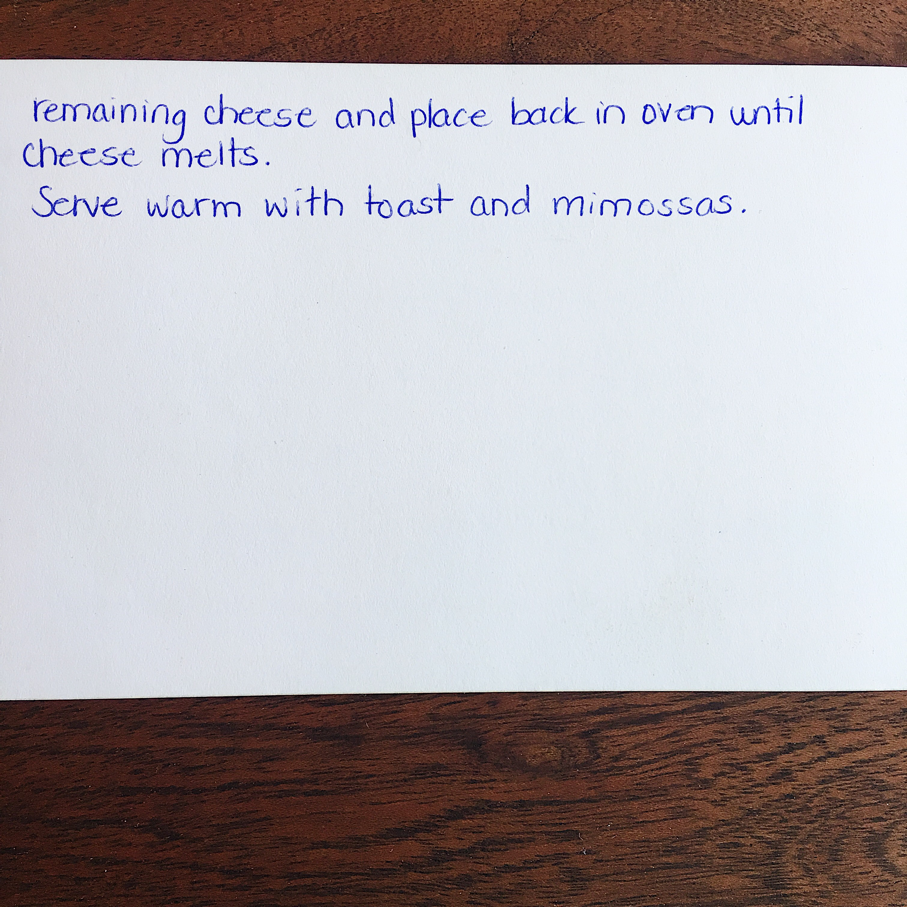 remaining cheese and place back in oven until
cheese melts.
Serve warm with toast and mimossas.